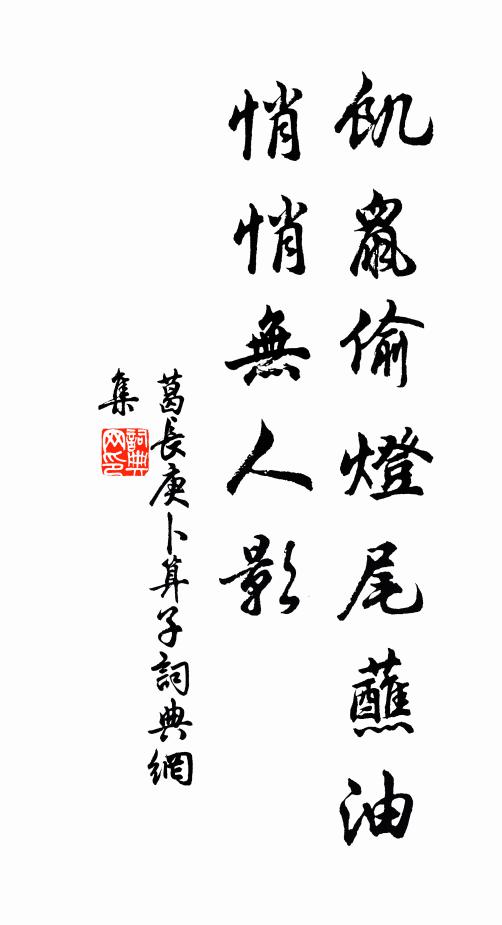 飢鼠偷燈尾蘸油
悄悄無人影
葛長庚卜算子詞典網
集
詞典
网印